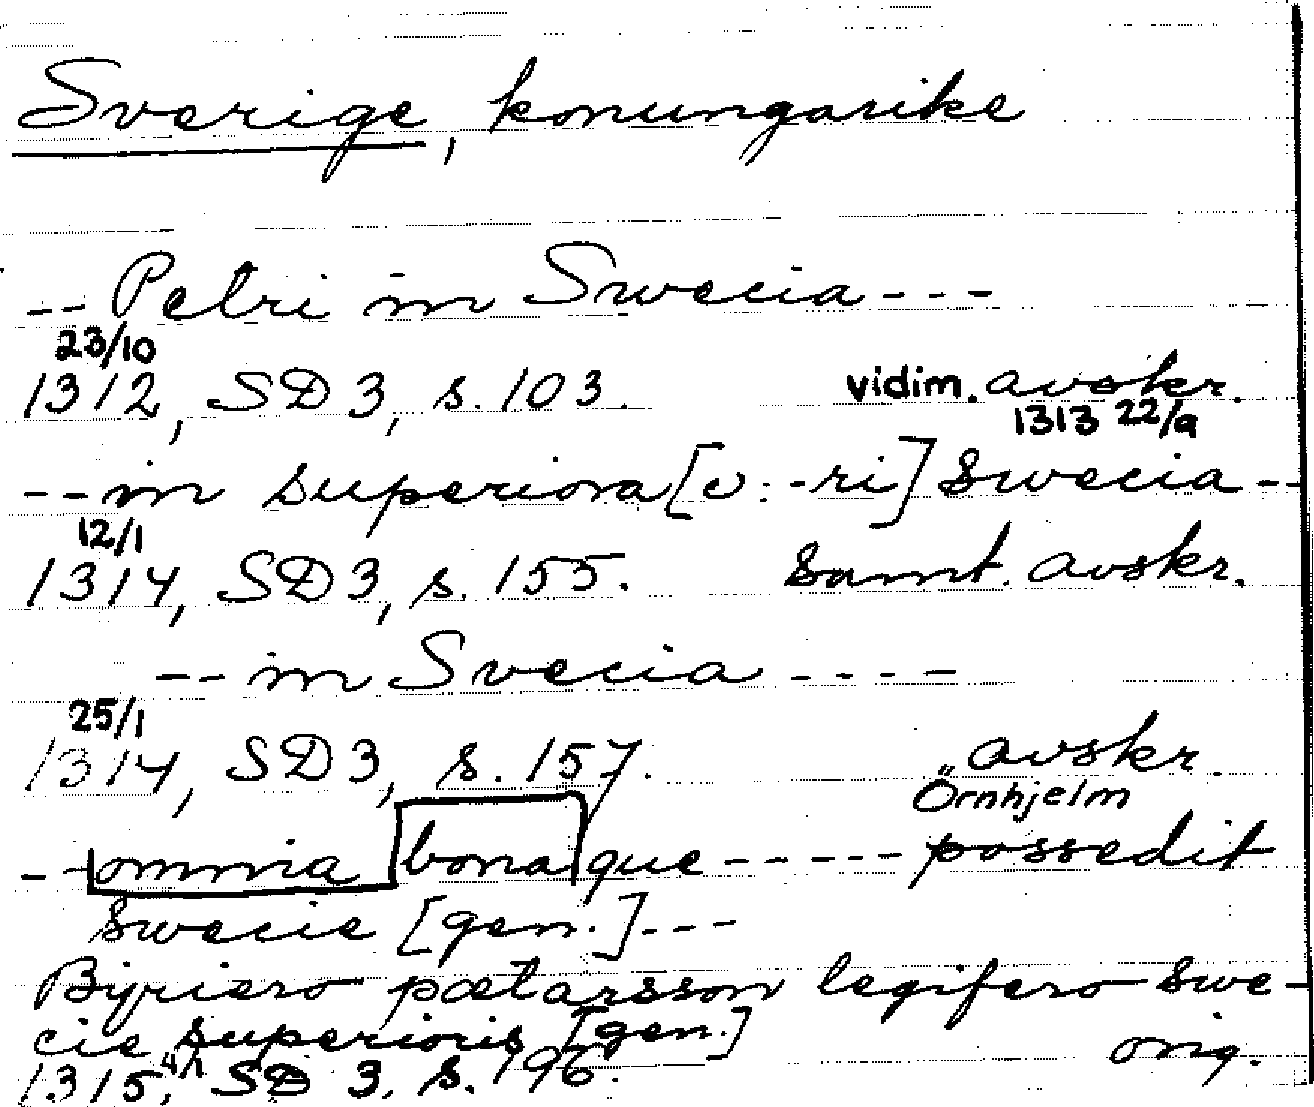 Sverige, konungarike
-- Petri in Swecia ---
23/10
1312, SD 3, s. 103. vidim. avskr.
1313 22/9
-- in superiora [v: -ri] Swecia --
12/1
1314, SD 3, s. 155. samt. avskr.
-- in Svecia ----
25/1
1314, SD 3, s. 157. avskr.
Örnhjelm
-- omnia bona que ----- possedit
Swecie [gen.] ---
Byriero pætarsson legifero Swe-
cie superioris [gen.]
1315, SD 3, s. 196. orig.